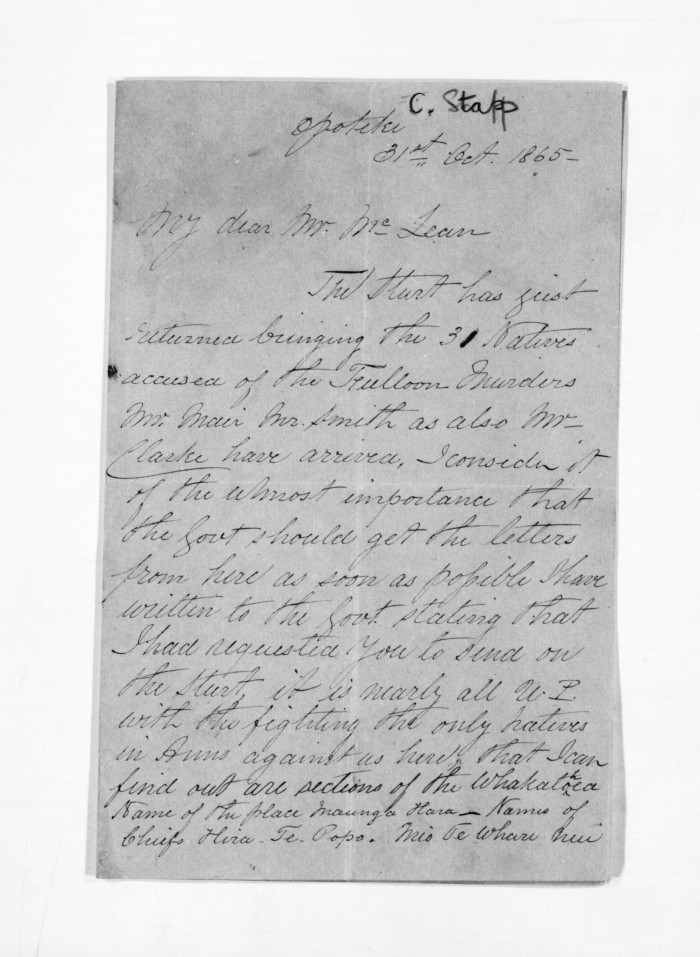 C. Stapp
Opotiki
31st Oct. 1865-
My dear Mr. Mc Lean
The Sturt has just
returned bringing the 31 Natives
accused of the Fulloon Murders
Mr. Mair Mr. Smith as also Mr
Clarke have arrived, I consider it
of the utmost importance that
the Govt should get the letters
from here as soon as possible I have
written to the Govt. stating that
I had requested You to send on
the Sturt, it is nearly all U. P.
with the fighting the only natives
in Arms against us here, that I can
find out are sections of the Whakatohea
Name of the place Maunga Hara - Names of
Chiefs Hira - Te - Popo. Te Whare nui